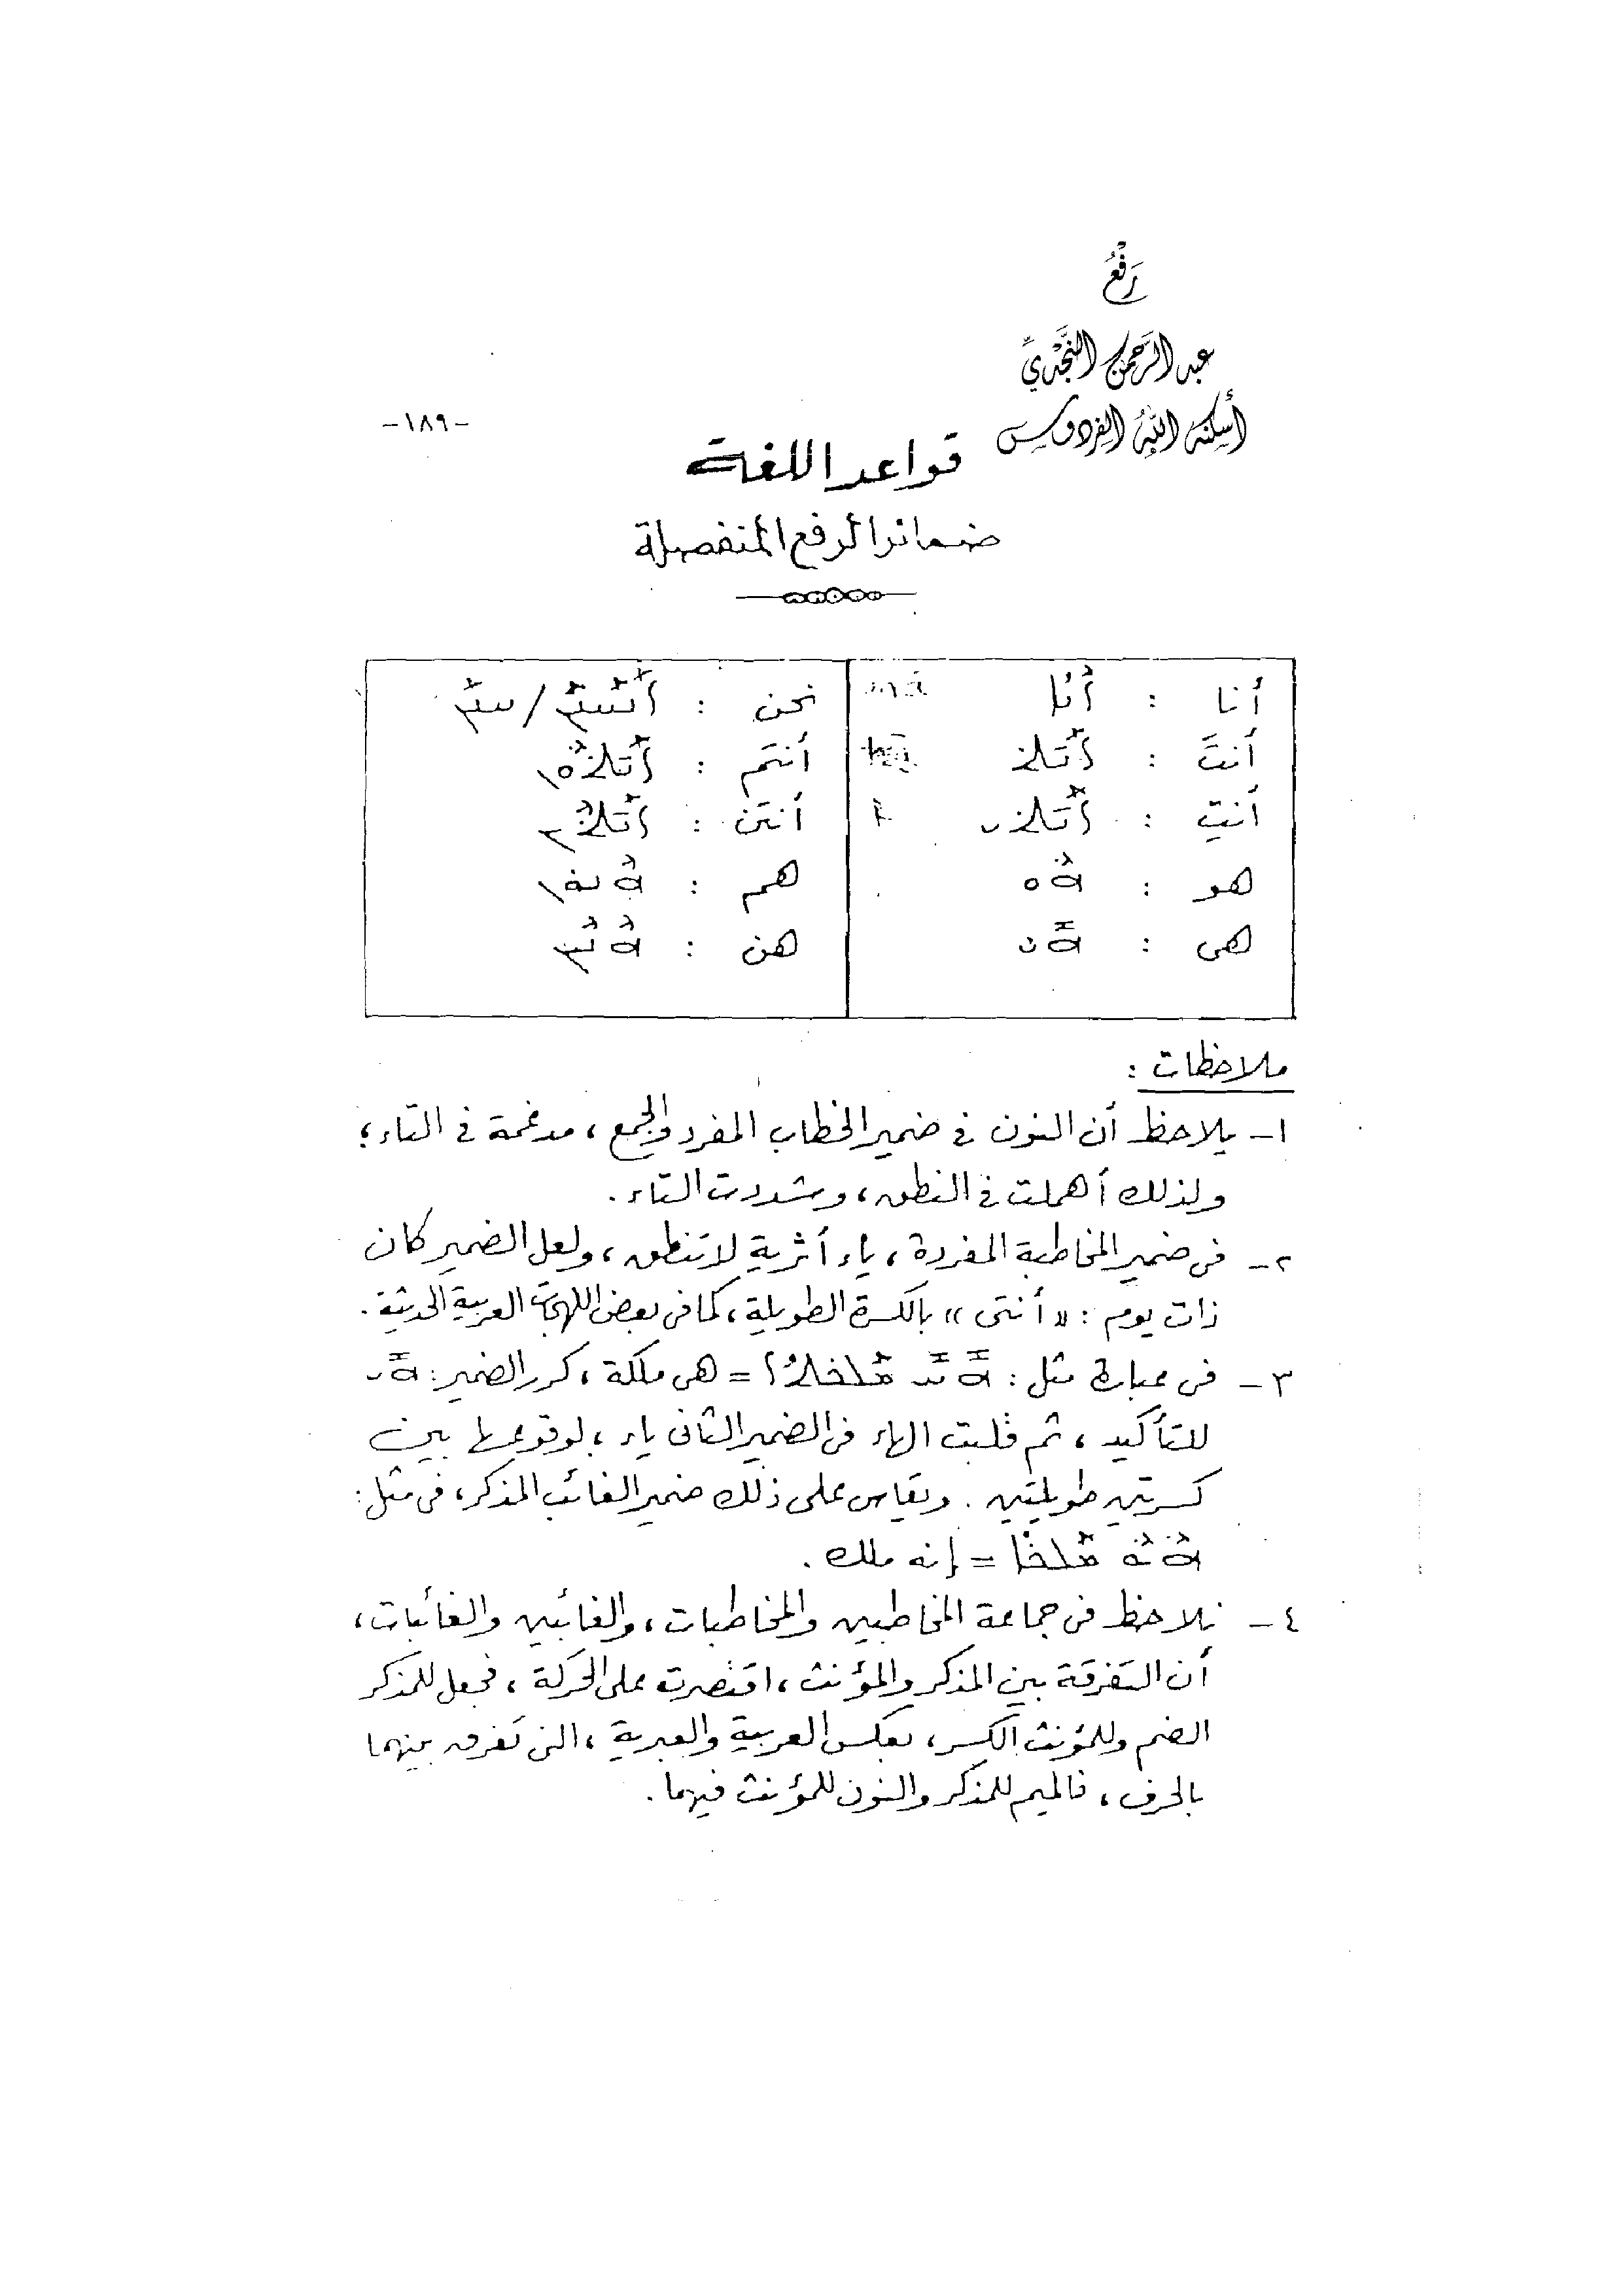 رَفْعُ
عبد الرحمن النجدي
أسكنه الله الفردوس
-١٨٩-
قواعد اللغة
ضمائر الرفع المنفصلة
أنا : ܐܶܢܳܐ
نحن : ܐܰܢܰܚܢܰܢ / ܚܢܰܢ
أنتَ : ܐܰܢܬ
أنتم : ܐܰܢܬܽܘܢ
أنتِ : ܐܰܢܬܝ
أنتن : ܐܰܢܬܶܝܢ
هو : ܗܽܘ
هم : ܗܶܢܽܘܢ
هى : ܗܺܝ
هن : ܗܶܢܶܝܢ
ملاحظات :
١- يلاحظ أن النون فى ضمير الخطاب المفرد والجمع ، مدغمة فى التاء ؛
ولذلك أهملت فى النطق ، وشددت التاء .
٢- فى ضمير المخاطبة المفردة ، ياء أثرية لا تنطق ، ولعل الضمير كان
ذات يوم : «أنتى» بالكسرة الطويلة ، كما فى بعض اللهجات العربية الحديثة .
٣- فى عبارة مثل : ܗܺܝ ܝܺܗ ܡܰܠܟܬܳܐ = هى ملكة ، كرر الضمير : ܗܺܝ
للتأكيد ، ثم قلبت الهاء فى الضمير الثانى ياء ، لوقوعها بين
كسرتين طويلتين . ويقاس على ذلك ضمير الغائب المذكر ، فى مثل :
ܡܰܠܟܳܐ = إنه ملك .
٤- نلاحظ فى جماعة المخاطبين والمخاطبات ، والغائبين والغائبات ،
أن التفرقة بين المذكر والمؤنث ، اقتصرت على الحركة ، فجعل للمذكر
الضم وللمؤنث الكسر ، بعكس العربية والعبرية ، التى تفرق بينهما
بالحرف ، فالميم للمذكر والنون للمؤنث فيهما .